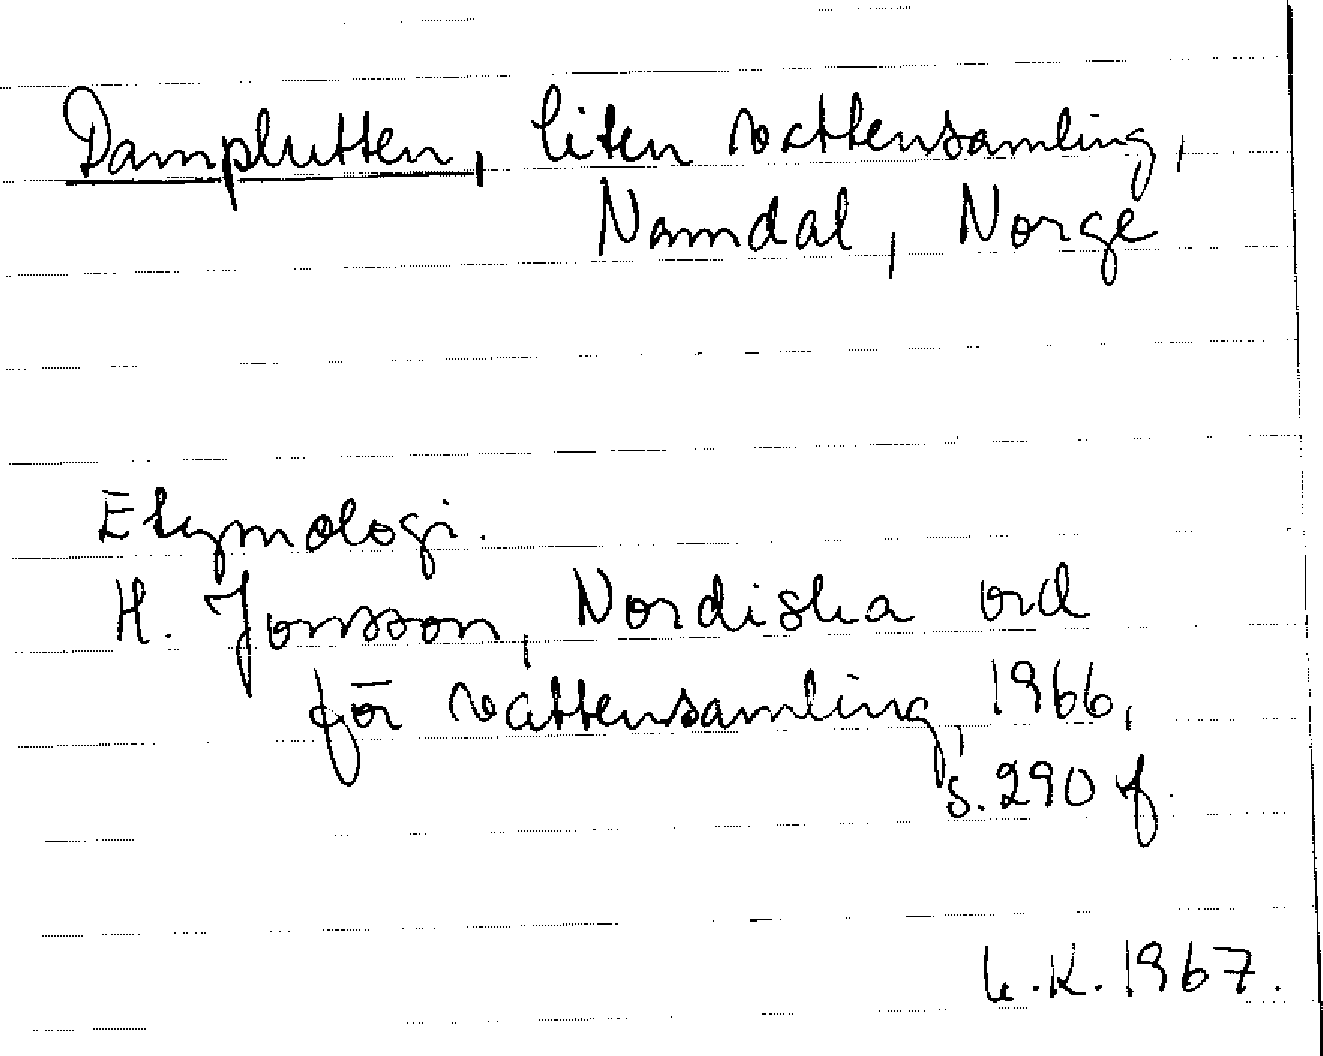 Damplutten, liten vattensamling,
Namdal, Norge
Etymologi.
H. Jonsson, Nordiska ord
för vattensamling, 1966,
s. 290 f.
K. 1967.